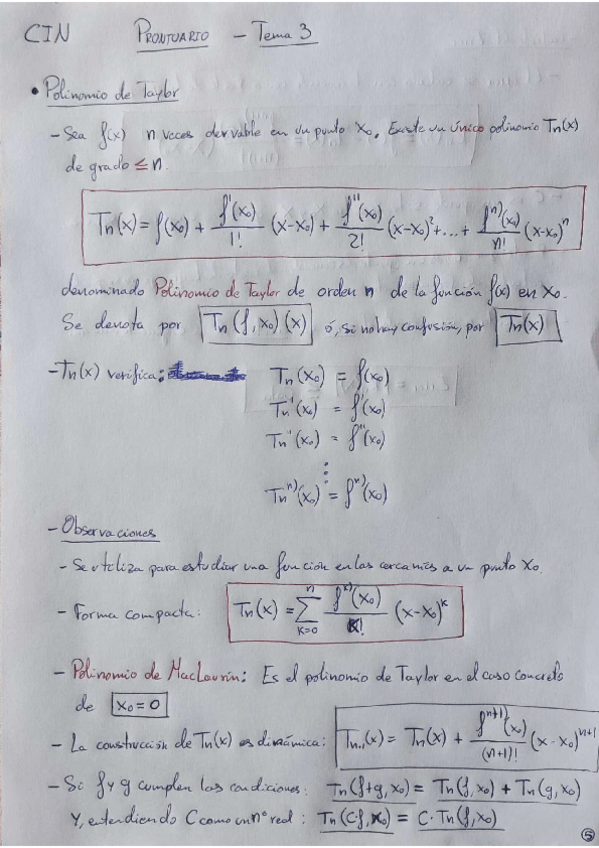 CIN PRONTUARIO - Tema 3
• Polinomio de Taylor
- Sea f(x) n veces derivable en un punto x₀. Existe un único polinomio Tn(x)
de grado ≤ n.
Tn(x) = f(x₀) + f'(x₀)/1! (x-x₀) + f''(x₀)/2! (x-x₀)² + ... + fⁿ⁾(x₀)/n! (x-x₀)ⁿ
denominado Polinomio de Taylor de orden n de la función f(x) en x₀.
Se denota por Tn(f, x₀)(x) ó, si no hay confusión, por Tn(x)
- Tn(x) verifica: Tn(x₀) = f(x₀)
Tn'(x₀) = f'(x₀)
Tn''(x₀) = f''(x₀)
⋮
Tnⁿ⁾(x₀) = fⁿ⁾(x₀)
- Observaciones
- Se utiliza para estudiar una función en las cercanías a un punto x₀.
- Forma compacta: Tn(x) = ∑ₖ₌₀ⁿ fᵏ⁾(x₀)/k! (x-x₀)ᵏ
- Polinomio de MacLaurin: Es el polinomio de Taylor en el caso concreto
de x₀ = 0
- La construcción de Tn(x) es dinámica: Tn+1(x) = Tn(x) + fⁿ⁺¹⁾(x₀)/(n+1)! (x-x₀)ⁿ⁺¹
- Si f y g cumplen las condiciones: Tn(f+g, x₀) = Tn(f, x₀) + Tn(g, x₀)
Y, entendiendo C como un nº real: Tn(C·f, x₀) = C·Tn(f, x₀)
5